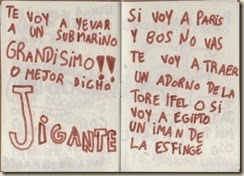 TE VOY A YEVAR
A UN SUBMARINO
GRANDISIMO!!
O MEJOR DICHO
JIGANTE
SI VOY A PARIS
Y BOS NO VAS
TE VOY A TRAER
UN ADORNO DE LA
TORE IFEL O SI
VOY A EGIPTO
UN IMAN DE
LA ESFINGE